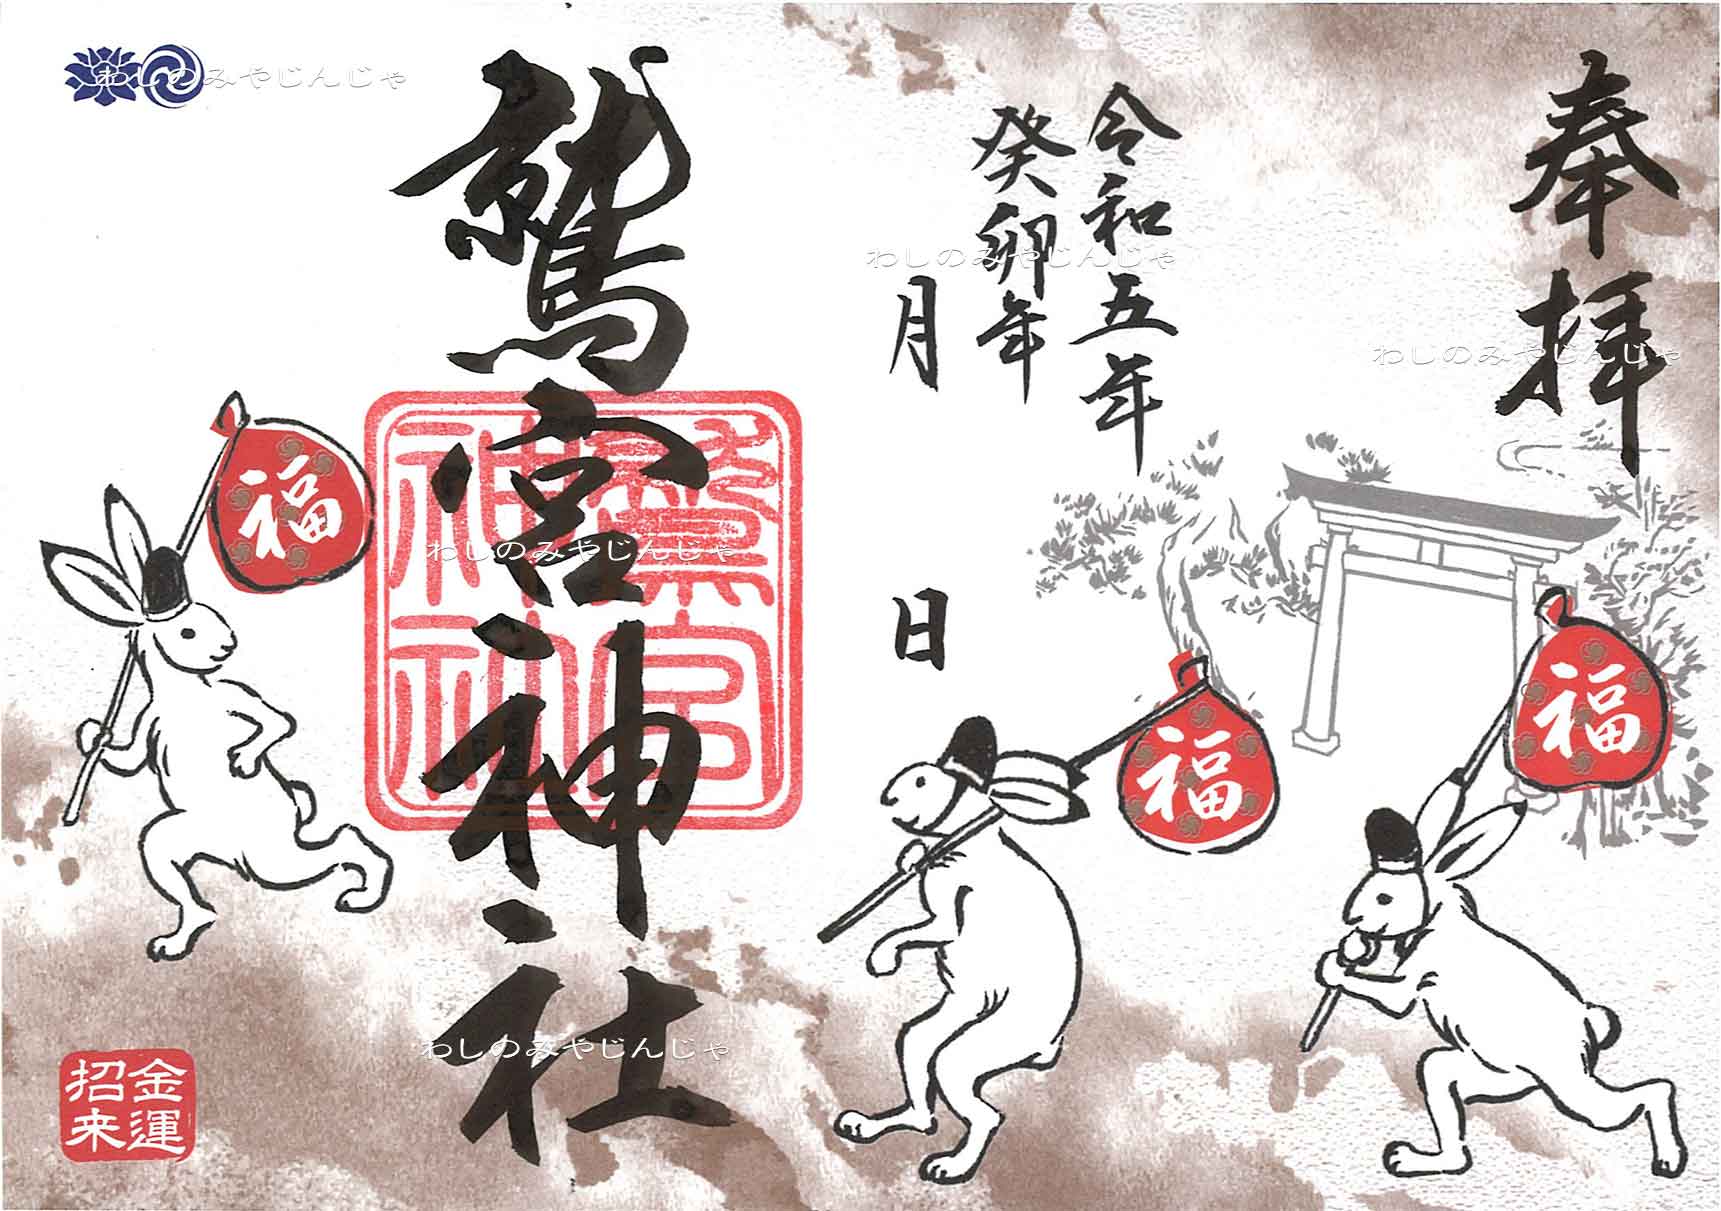 奉拝
令和五年
癸卯年
月 日
鷲宮神社
鷲宮
神社
福
福
福
金運
招来
わしのみやじんじゃ
わしのみやじんじゃ
わしのみやじんじゃ
わしのみやじんじゃ
わしのみやじんじゃ